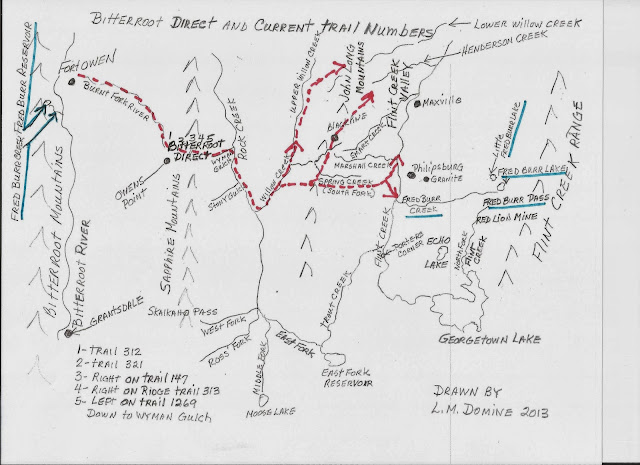 Bitterroot Direct and Current Trail Numbers
Lower Willow Creek
Henderson Creek
Fred Burr Creek Fred Burr Reservoir
Fort Owen
Burnt Fork River
Bitterroot Mountains
Bitterroot River
Grantsdale
Owens Point
1 2 3 4 5
Bitterroot Direct
Sapphire Mountains
Wyman Gulch
Stony Gulch
Rock Creek
Upper Willow Creek
Willow Creek
John Long Mountains
Black Pine
Smart Creek
Marshall Creek
Spring Creek
(South Fork)
Flint Creek Valley
Maxville
Philipsburg
Granite
Fred Burr Creek
Little Fred Burr Lake
Fred Burr Lake
Fred Burr Pass
Red Lion Mine
Flint Creek Range
Flint Creek
Porters Corner
Echo Lake
North Fork Flint Creek
Georgetown Lake
Trout Creek
Skalkaho Pass
West Fork
Ross Fork
Middle Fork
East Fork
East Fork Reservoir
Moose Lake
1- Trail 312
2- Trail 321
3- Right on Trail 147
4- Right on Ridge Trail 313
5- Left on Trail 1269
Down to Wyman Gulch
Drawn by
L.M. Domine 2013